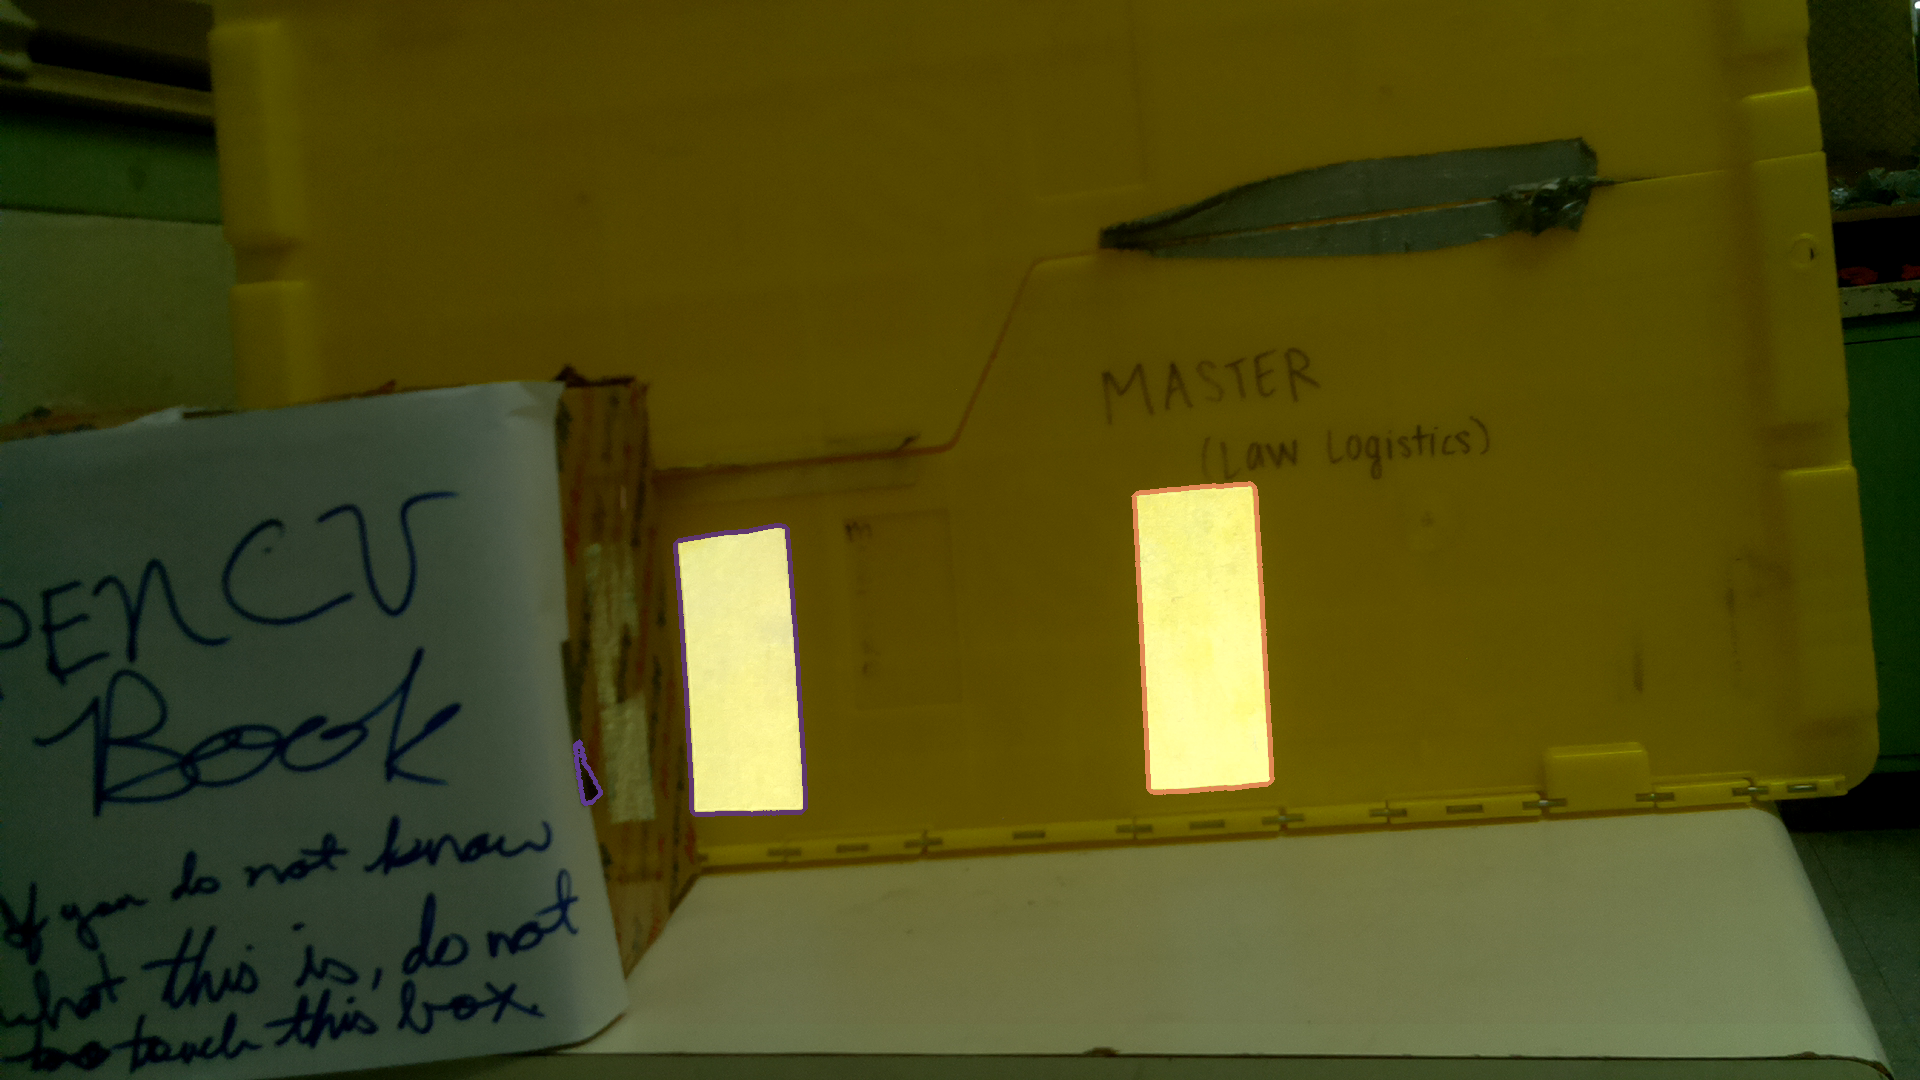 PENCV
Book
If you do not know
what this is, do not
touch this box.
MASTER
(Law Logistics)